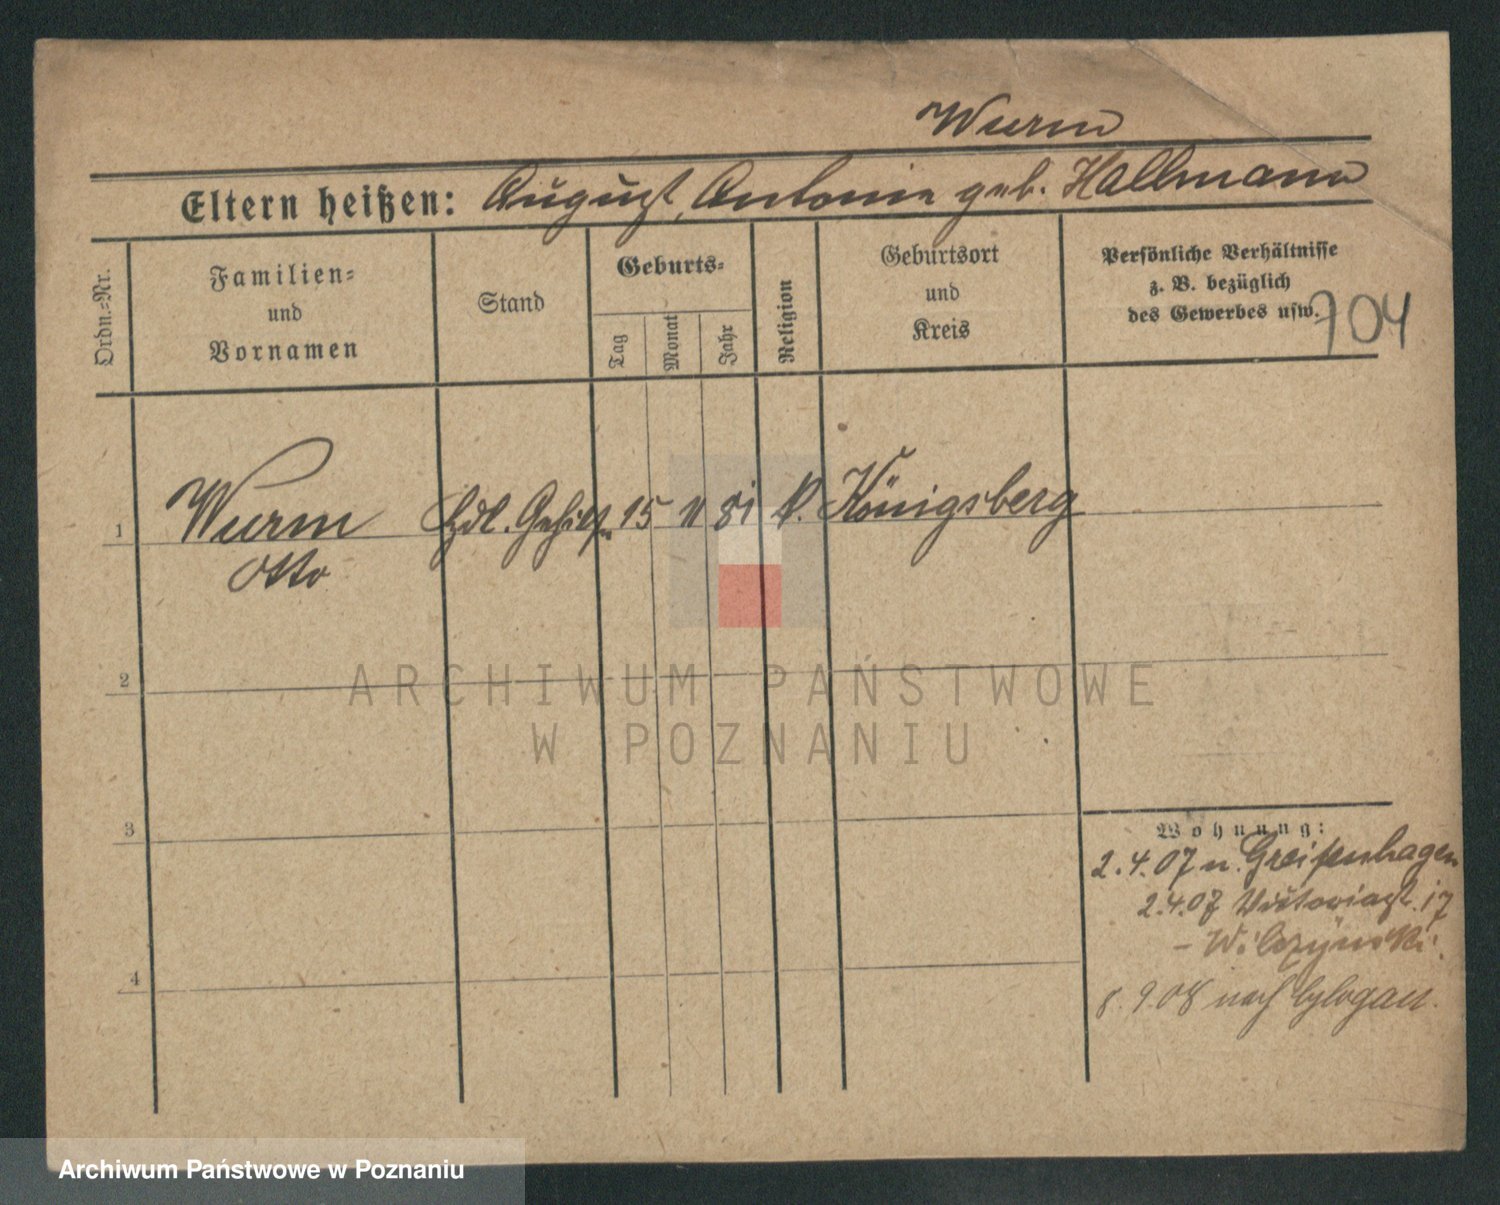 Wurm
Eltern heißen: August, Antonie geb. Hallmann
Ordn.-Nr.
Familien-
und
Vornamen
Stand
Geburts-
Tag
Monat
Jahr
Religion
Geburtsort
und
Kreis
Persönliche Verhältnisse
z. B. bezüglich
des Gewerbes usw.
704
1 Wurm Hdl. Gehilf. 15 11 81 k. Königsberg
Otto
2
3
4
Wohnung:
2.4.07 n. Greifenhagen
2.4.07 Viktoriast. 17
- Wilczynski.
8.9.08 nach Glogau.
ARCHIWUM PAŃSTWOWE
W POZNANIU
Archiwum Państwowe w Poznaniu